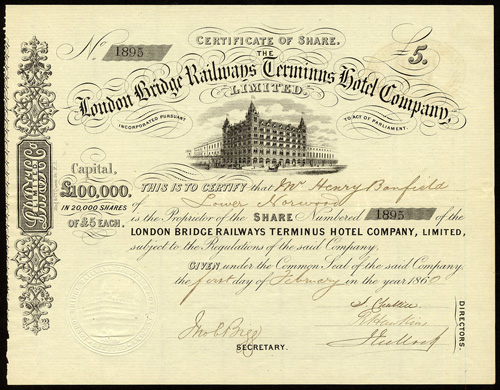 CERTIFICATE OF SHARE.
No. 1895
£5.
THE
London Bridge Railways Terminus Hotel Company,
LIMITED.
INCORPORATED PURSUANT
TO ACT OF PARLIAMENT.
Capital,
£100,000,
IN 20,000 SHARES
OF £5 EACH.
THIS IS TO CERTIFY that Mr Henry Banfield
of Lower Norwood
is the Proprietor of the SHARE Numbered 1895 of the
LONDON BRIDGE RAILWAYS TERMINUS HOTEL COMPANY, LIMITED,
subject to the Regulations of the said Company.
GIVEN under the Common Seal of the said Company
the first day of February in the year 1860
DIRECTORS.
SECRETARY.